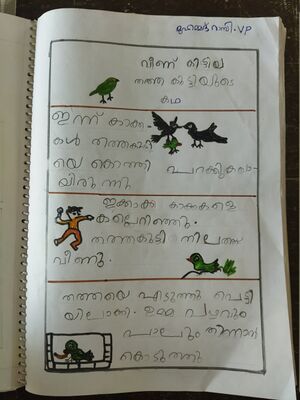 മുഹമ്മദ് റാസി-VP
വീണ് കിട്ടിയ
തത്ത കുട്ടിയുടെ
കഥ
ഇന്ന് കാക്ക-
കൾ തത്തക്കുട്ടി
യെ കൊത്തി പറക്കുകയാ-
യിരുന്നു
ഇക്കാക്ക കാക്കകളെ
കല്ലെറിഞ്ഞു.
തത്തകുട്ടി നിലത്ത്
വീണു.
തത്തയെ എടുത്തു പെട്ടി
യിലാക്കി. ഉമ്മ പഴവും
പാലും തിന്നാൻ
കൊടുത്തു